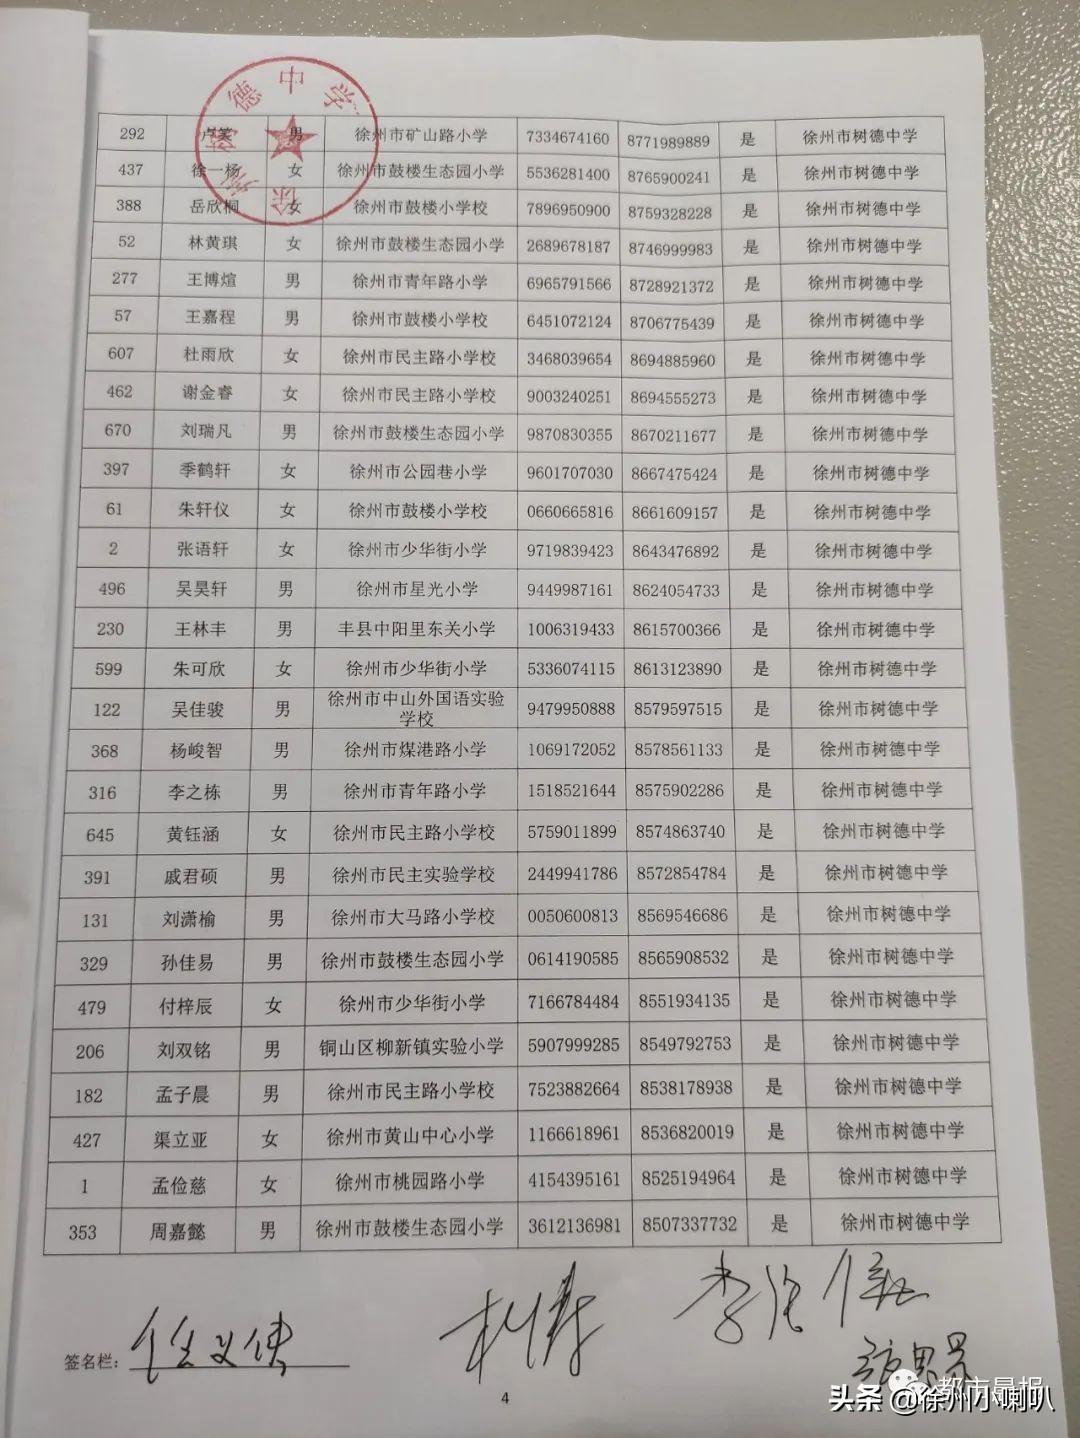 树德中学
292 卢笑 男 徐州市矿山路小学 7334674160 8771989889 是 徐州市树德中学
437 徐一杨 女 徐州市鼓楼生态园小学 5536281400 8765900241 是 徐州市树德中学
388 岳欣桐 女 徐州市鼓楼小学校 7896950900 8759328228 是 徐州市树德中学
52 林黄琪 女 徐州市鼓楼生态园小学 2689678187 8746999983 是 徐州市树德中学
277 王博煊 男 徐州市青年路小学 6965791566 8728921372 是 徐州市树德中学
57 王嘉程 男 徐州市鼓楼小学校 6451072124 8706775439 是 徐州市树德中学
607 杜雨欣 女 徐州市民主路小学校 3468039654 8694885960 是 徐州市树德中学
462 谢金睿 女 徐州市民主路小学校 9003240251 8694555273 是 徐州市树德中学
670 刘瑞凡 男 徐州市鼓楼生态园小学 9870830355 8670211677 是 徐州市树德中学
397 季鹤轩 女 徐州市公园巷小学 9601707030 8667475424 是 徐州市树德中学
61 朱轩仪 女 徐州市鼓楼小学校 0660665816 8661609157 是 徐州市树德中学
2 张语轩 女 徐州市少华街小学 9719839423 8643476892 是 徐州市树德中学
496 吴昊轩 男 徐州市星光小学 9449987161 8624054733 是 徐州市树德中学
230 王林丰 男 丰县中阳里东关小学 1006319433 8615700366 是 徐州市树德中学
599 朱可欣 女 徐州市少华街小学 5336074115 8613123890 是 徐州市树德中学
122 吴佳骏 男 徐州市中山外国语实验学校 9479950888 8579597515 是 徐州市树德中学
368 杨峻智 男 徐州市煤港路小学 1069172052 8578561133 是 徐州市树德中学
316 李之栋 男 徐州市青年路小学 1518521644 8575902286 是 徐州市树德中学
645 黄钰涵 女 徐州市民主路小学校 5759011899 8574863740 是 徐州市树德中学
391 戚君硕 男 徐州市民主实验学校 2449941786 8572854784 是 徐州市树德中学
131 刘潇榆 男 徐州市大马路小学校 0050600813 8569546686 是 徐州市树德中学
329 孙佳易 男 徐州市鼓楼生态园小学 0614190585 8565908532 是 徐州市树德中学
479 付梓辰 女 徐州市少华街小学 7166784484 8551934135 是 徐州市树德中学
206 刘双铭 男 铜山区柳新镇实验小学 5907999285 8549792753 是 徐州市树德中学
182 孟子晨 男 徐州市民主路小学校 7523882664 8538178938 是 徐州市树德中学
427 渠立亚 女 徐州市黄山中心小学 1166618961 8536820019 是 徐州市树德中学
1 孟俭慈 女 徐州市桃园路小学 4154395161 8525194964 是 徐州市树德中学
353 周嘉懿 男 徐州市鼓楼生态园小学 3612136981 8507337732 是 徐州市树德中学
签名栏：
4
都市晨报
头条 @徐州小喇叭